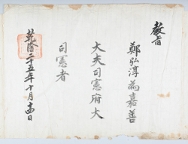 敎旨
鄭弘淳爲嘉善
大夫司憲府大
司憲者
乾隆二十五年十月十四日